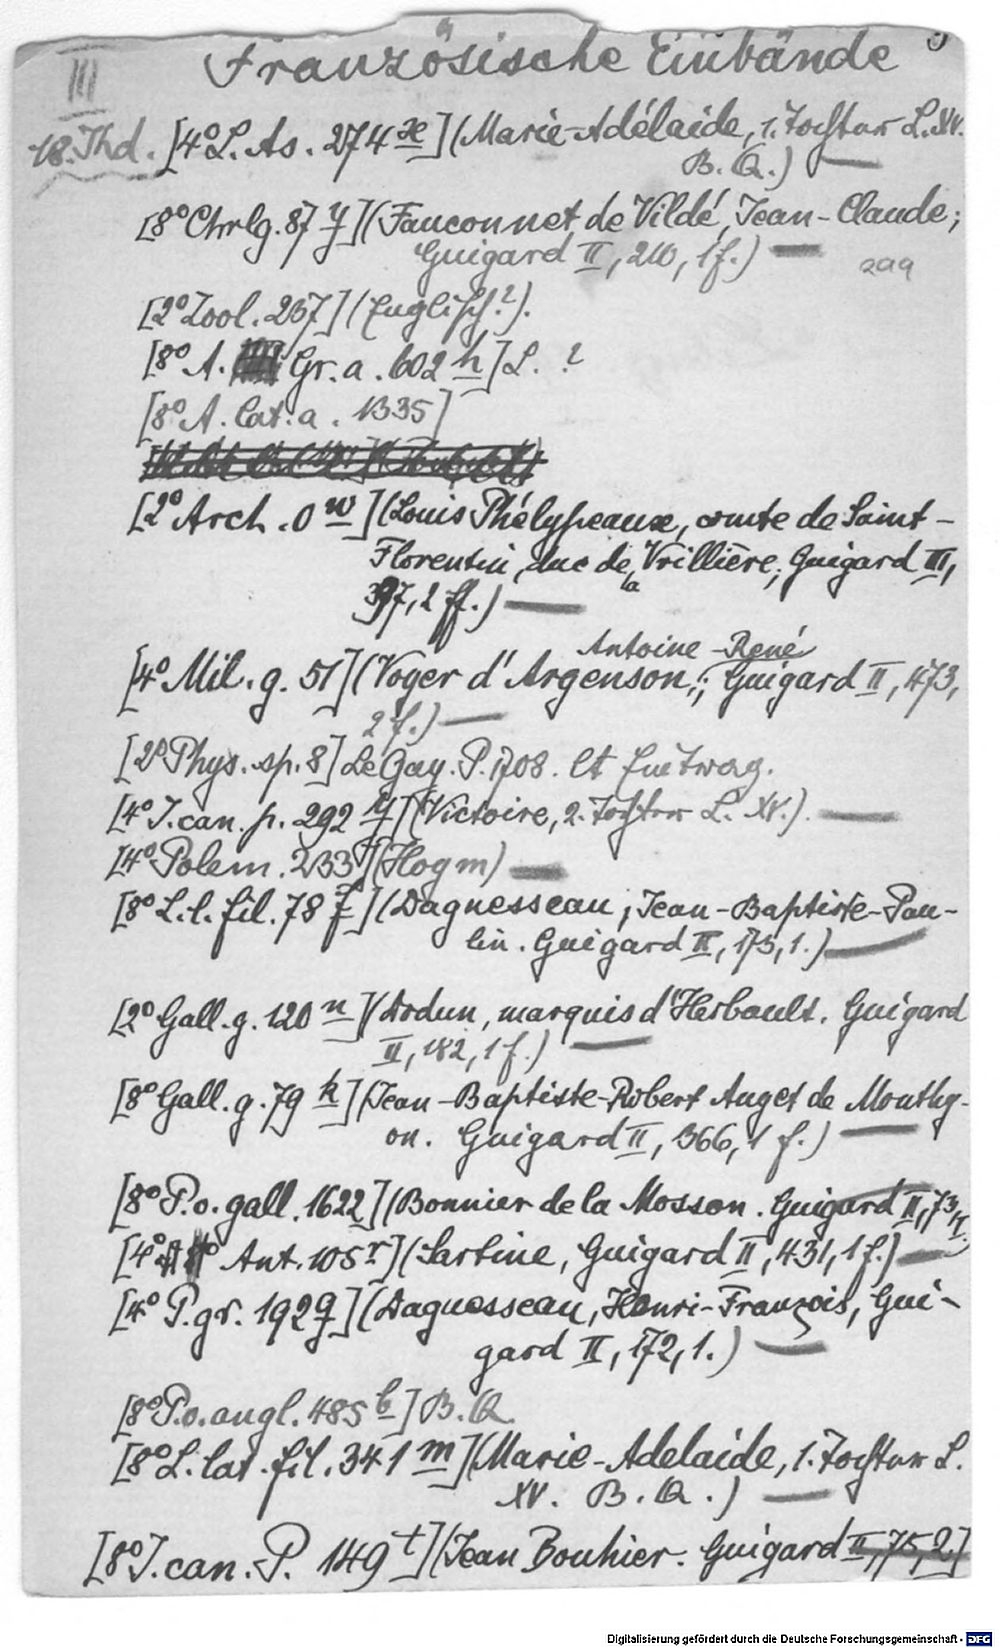 III Französische Einbände
18. Jhd. [4° L. As. 274 x] (Marie-Adélaide, 1. Tochter L. XV.
B. Q.) —
[8° Chrlg. 87 y] (Fauconnet de Vildé, Jean-Claude;
Guigard II, 210, 1 f.) —
[2° Zool. 257] (Englisch?).
[8° A. Gr. a. 602 h] L. ?
[8° A. lat. a. 1335]
[2° Arch. 0 w] (Louis Phélypeaux, comte de Saint-
Florentin, duc de la Vrillière; Guigard III,
397, 2 ff.) —
Antoine-René
[4° Mil. g. 51] (Voyer d'Argenson,; Guigard II, 473,
2 f.) —
[2° Phys. sp. 8] Le Gay. P. 1708. Lt Eintrag.
[4° J. can. p. 292 y] (Victoire, 2. Tochter L. XV.). —
[4° Polem. 233] (Hogm) —
[8° L. l. fil. 78 f] (Daguesseau, Jean-Baptiste-Pau-
lin. Guigard II, 173, 1.) —
[2° Gall. g. 120 n] (Dodun, marquis d'Herbault. Guigard
II, 182, 1 f.) —
[8° Gall. g. 79 k] (Jean-Baptiste-Robert Auget de Monthy-
on. Guigard II, 366, 1 f.) —
[8° P. o. gall. 1622] (Bonnier de la Mosson. Guigard II, 73,
[4° Ant. 105 r] (Sartine, Guigard II, 431, 1 f.) —
[4° P. gr. 192 q] (Daguesseau, Henri-François, Gui-
gard II, 172, 1.) —
[8° P. o. angl. 485 b] B. Q.
[8° L. lat. fil. 341 m] (Marie-Adelaide, 1. Tochter L.
XV. B. Q.) —
[8° J. can. P. 149 t] (Jean Bouhier. Guigard II, 75, 2]
Digitalisierung gefördert durch die Deutsche Forschungsgemeinschaft - DFG